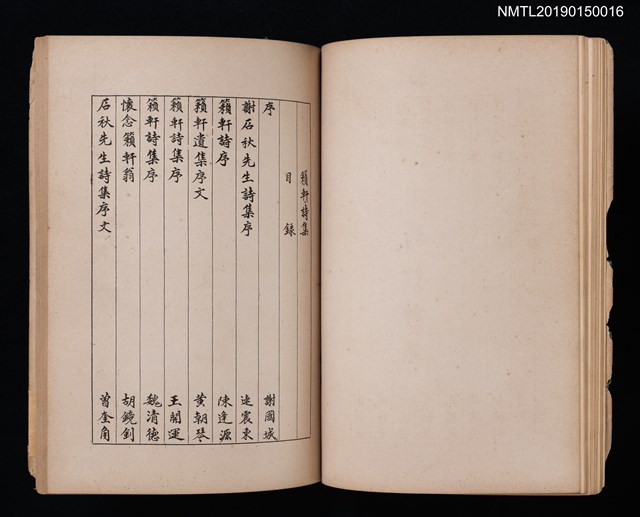 NMTL20190150016
籟軒詩集
目錄
序 謝國城
謝石秋先生詩集序 連震東
籟軒詩序 陳逢源
籟軒遺集序文 黃朝琴
籟軒詩集序 王開運
籟軒詩集序 魏清德
懷念籟軒翁 胡鏡釗
石秋先生詩集序文 曾奎角